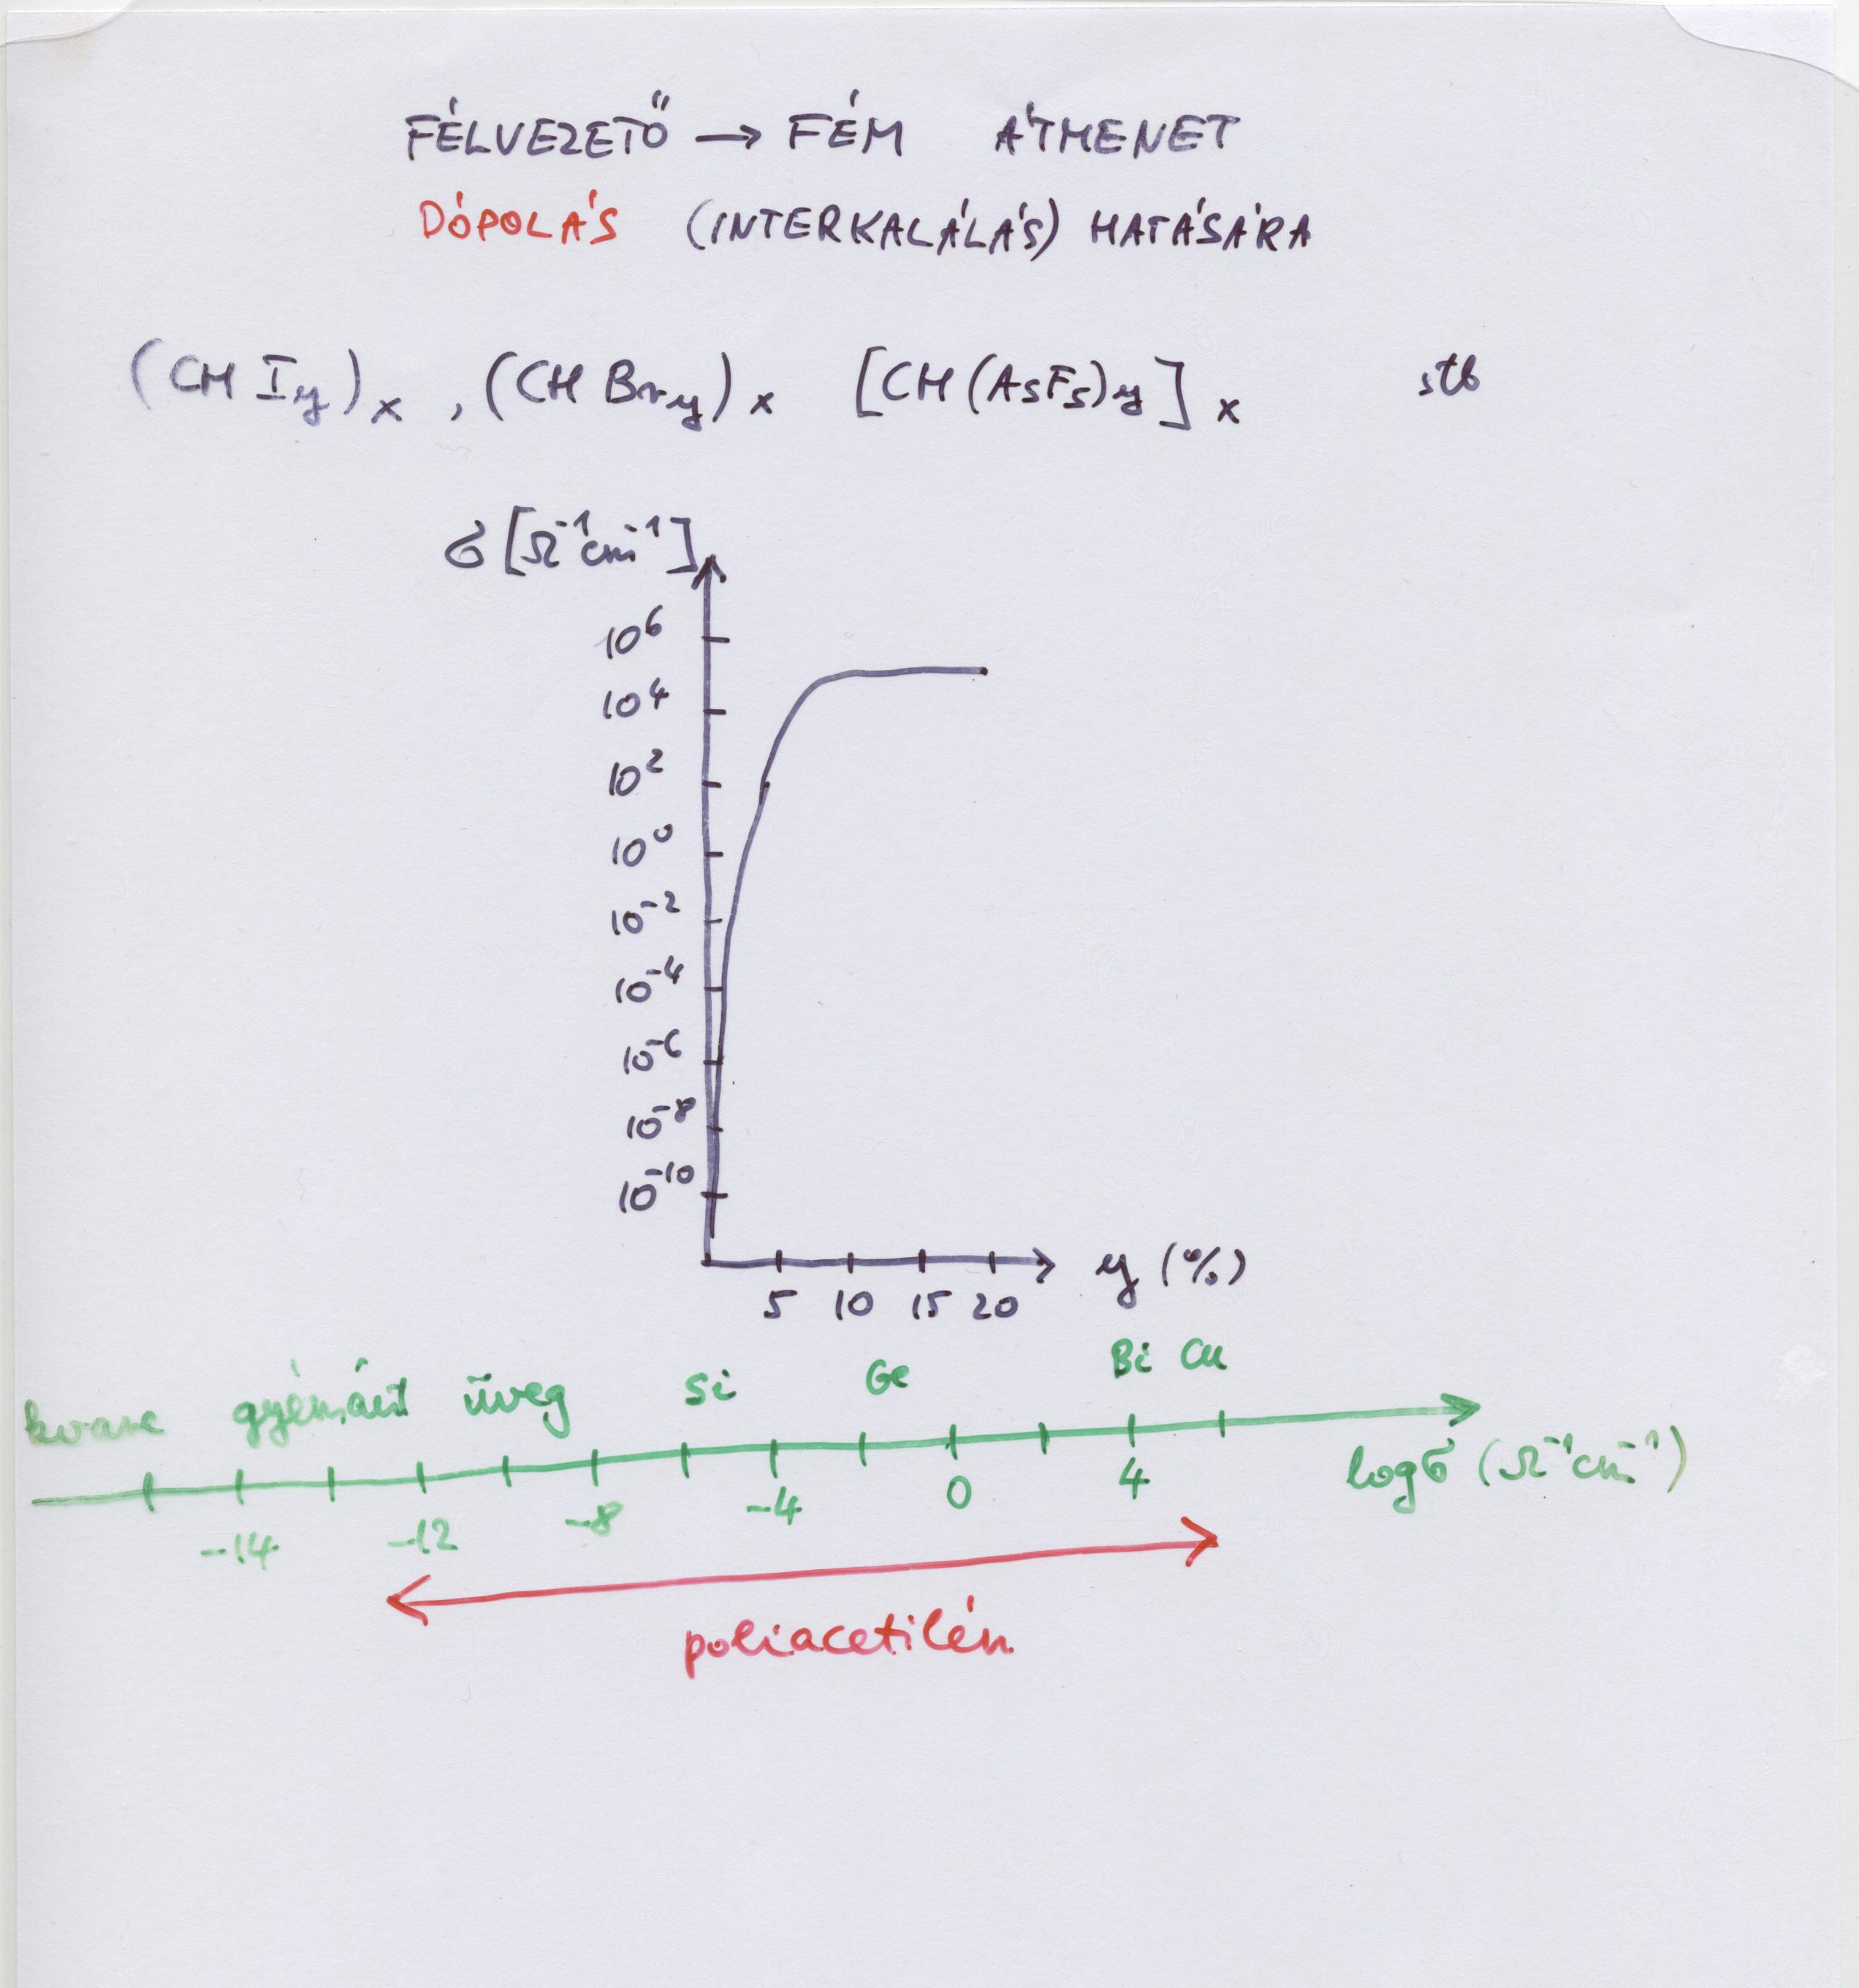 FÉLVEZETŐ → FÉM ÁTMENET
DÓPOLÁS (INTERKALÁLÁS) HATÁSÁRA
(CH I_y)_x , (CH Br_y)_x [CH(AsF_5)_y]_x stb
σ [Ω⁻¹cm⁻¹]
10⁶
10⁴
10²
10⁰
10⁻²
10⁻⁴
10⁻⁶
10⁻⁸
10⁻¹⁰
5 10 15 20 y (%)
kvarc gyémánt üveg Si Ge Bi Cu
-14 -12 -8 -4 0 4 log σ (Ω⁻¹cm⁻¹)
poliacetilén